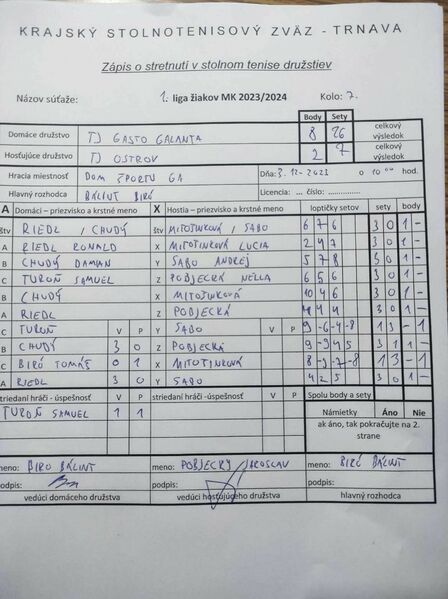 KRAJSKÝ STOLNOTENISOVÝ ZVÄZ - TRNAVA
Zápis o stretnutí v stolnom tenise družstiev
Názov súťaže: 1. liga žiakov MK 2023/2024 Kolo: 7.
Body Sety
Domáce družstvo TJ GASTO GALANTA 8 26 celkový výsledok
Hosťujúce družstvo TJ OSTROV 2 7 celkový výsledok
Hracia miestnosť DOM ŠPORTU GA Dňa: 3.12.2023 o 10 00 hod.
Hlavný rozhodca BÁLINT BIRÓ Licencia: ... číslo:
A Domáci – priezvisko a krstné meno X Hostia – priezvisko a krstné meno loptičky setov sety body
štv RIEDL / CHUDÝ štv MITOŠINKOVÁ / SABO 6 7 6 3 0 1 -
A RIEDL RONALD X MITOŠINKOVÁ LUCIA 2 4 7 3 0 1 -
B CHUDÝ DAMIAN Y SABO ANDREJ 5 7 8 3 0 1 -
C TUROŇ SAMUEL Z POBJECKÁ NELLA 6 5 6 3 0 1 -
B CHUDÝ X MITOŠINKOVÁ 10 4 6 3 0 1 -
A RIEDL Z POBJECKÁ 4 4 4 3 0 1 -
C TUROŇ V P Y SABO V P 9 -6 -4 -8 1 3 - 1
B CHUDÝ 3 0 Z POBJECKÁ 9 -9 4 5 3 1 1 -
C BIRÓ TOMÁŠ 0 1 X MITOŠINKOVÁ 8 -9 -7 -8 1 3 - 1
A RIEDL 3 0 Y SABO 4 2 5 3 0 1 -
striedaní hráči - úspešnosť V P striedaní hráči - úspešnosť V P Spolu body a sety:
TUROŇ SAMUEL 1 1 Námietky Áno Nie
ak áno, tak pokračujte na 2. strane
meno: BIRO BÁLINT meno: POBJECKÝ JAROSLAV meno: BIRÓ BÁLINT
podpis: podpis: podpis:
vedúci domáceho družstva vedúci hosťujúceho družstva hlavný rozhodca